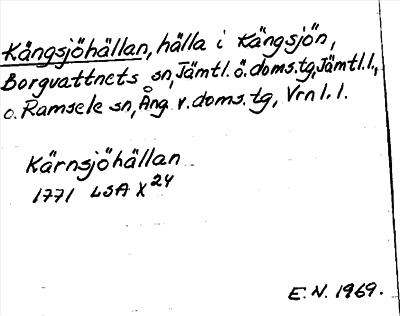 Kängsjöhällan, hälla i Kängsjön,
Borgvattnets sn, Jämtl. ö. doms.tg, Jämtl. l.,
o. Ramsele sn, Ång. v. doms. tg, Vrnl. l.
Kärnsjöhällan
1771 LSA X24
E. N. 1969.